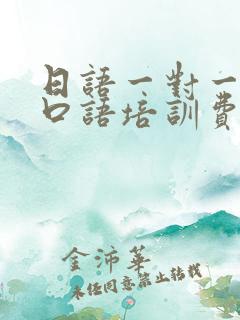 日語一對一
口語培訓費
金沛華
未經同意禁止轉載